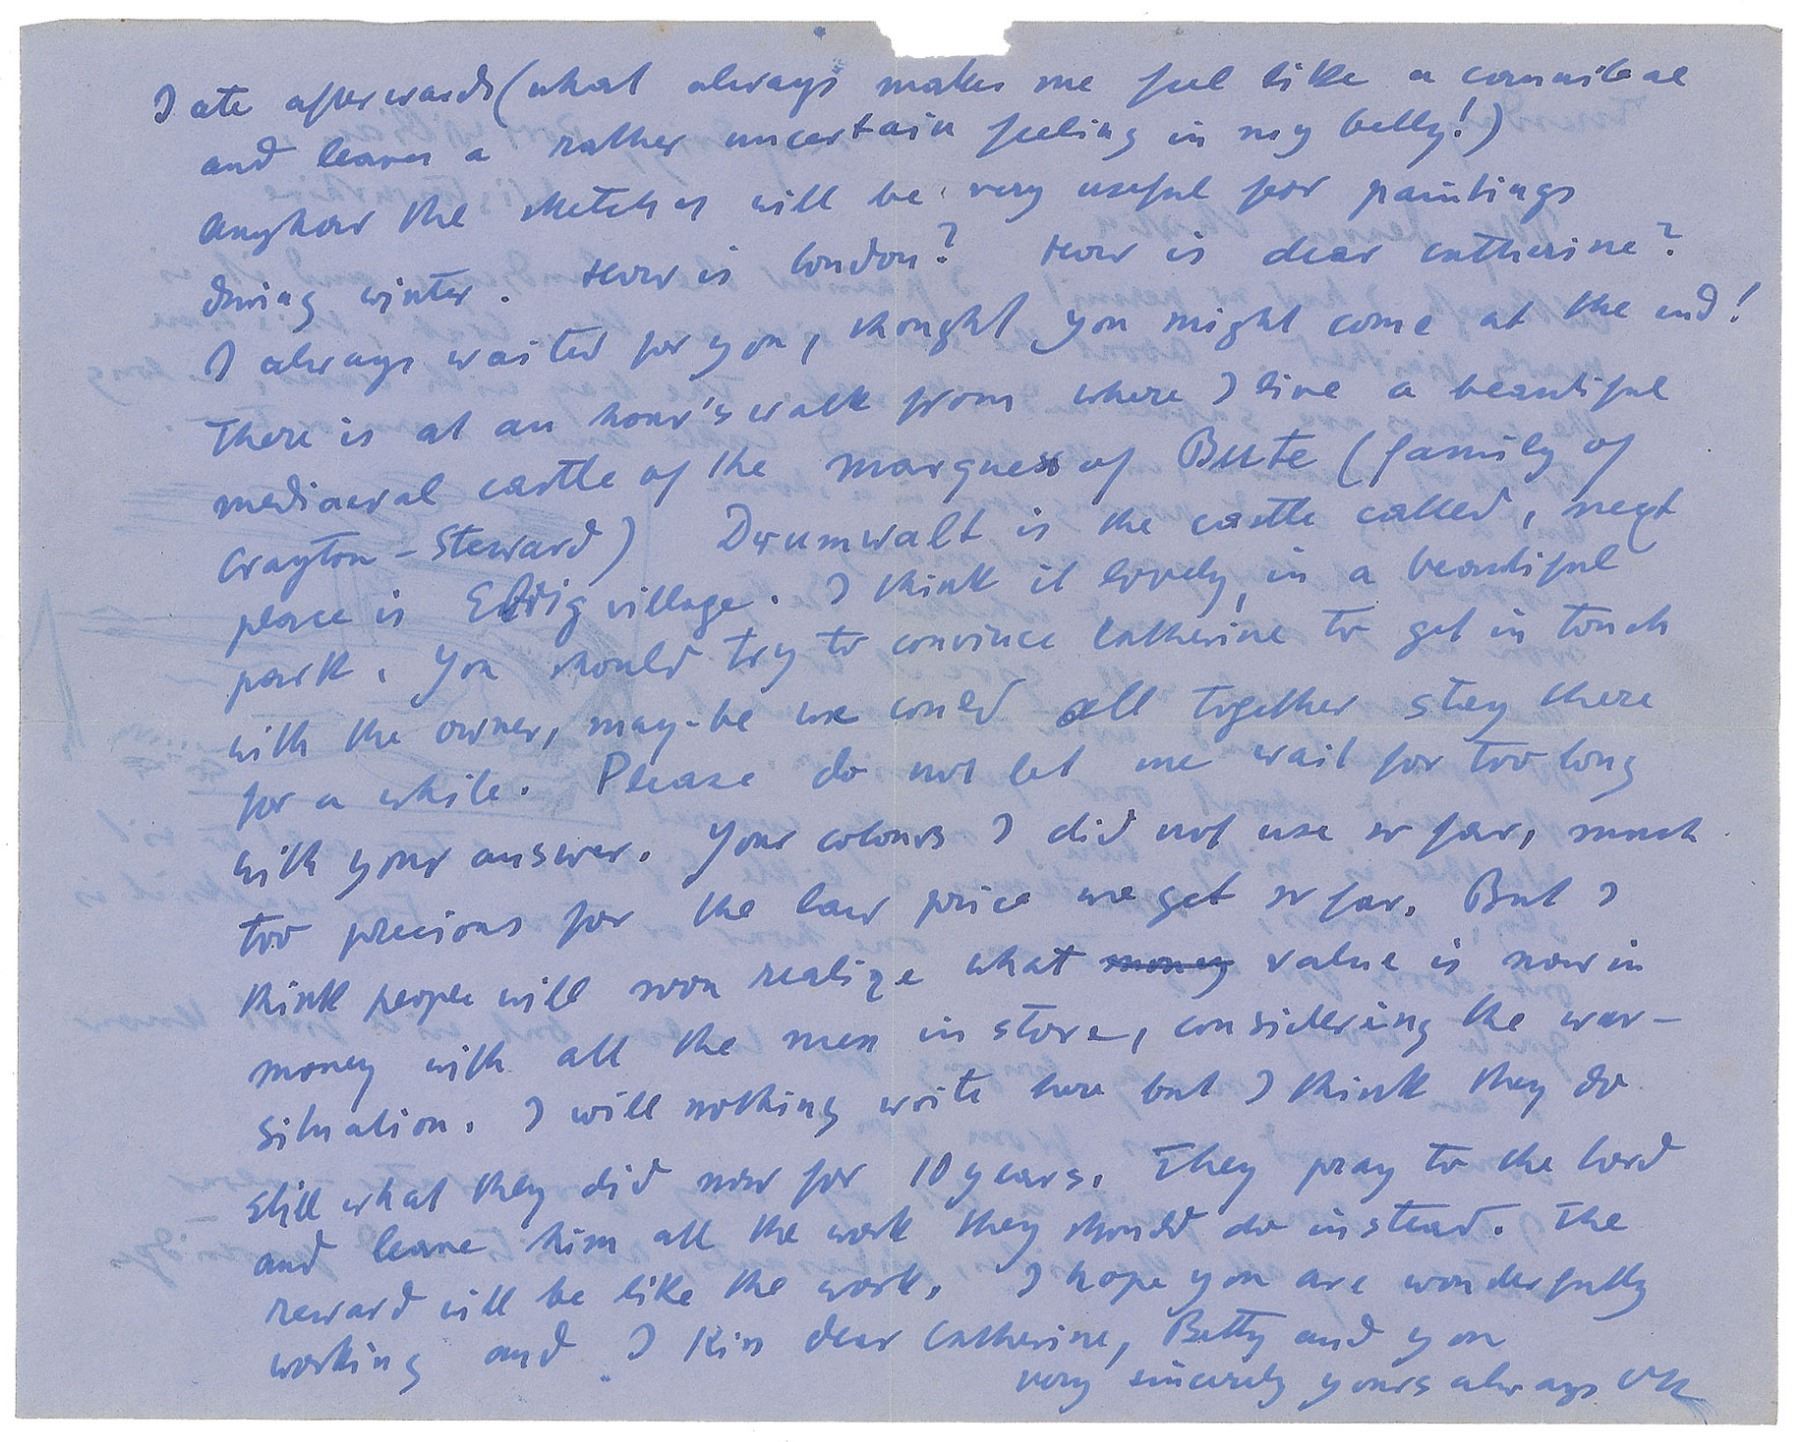 I ate afterwards (what always makes me feel like a cannibal
and leaves a rather uncertain feeling in my belly!)
Anyhow the sketches will be very useful for paintings
during winter. How is London? How is dear Catherine?
I always waited for you, thought you might come at the end!
There is at an hour's walk from where I live a beautiful
mediaeval castle of the marquess of Bute (family of
Crayton – Steward) Drumwalt is the castle called, next
place is Elrig village. I think it lovely, in a beautiful
park. You should try to convince Catherine to get in touch
with the owner, may-be we could all together stay there
for a while. Please do not let me wait for too long
with your answer. Your colours I did not use so far, much
too precious for the low price we get so far. But I
think people will soon realize what money value is now in
money with all the men in store, considering the war-
situation. I will nothing write here but I think they do
still what they did now for 10 years. They pray to the Lord
and leave him all the work they should do instead. The
reward will be like the work. I hope you are wonderfully
working and I kiss dear Catherine, Betty and you
very sincerely yours always OK